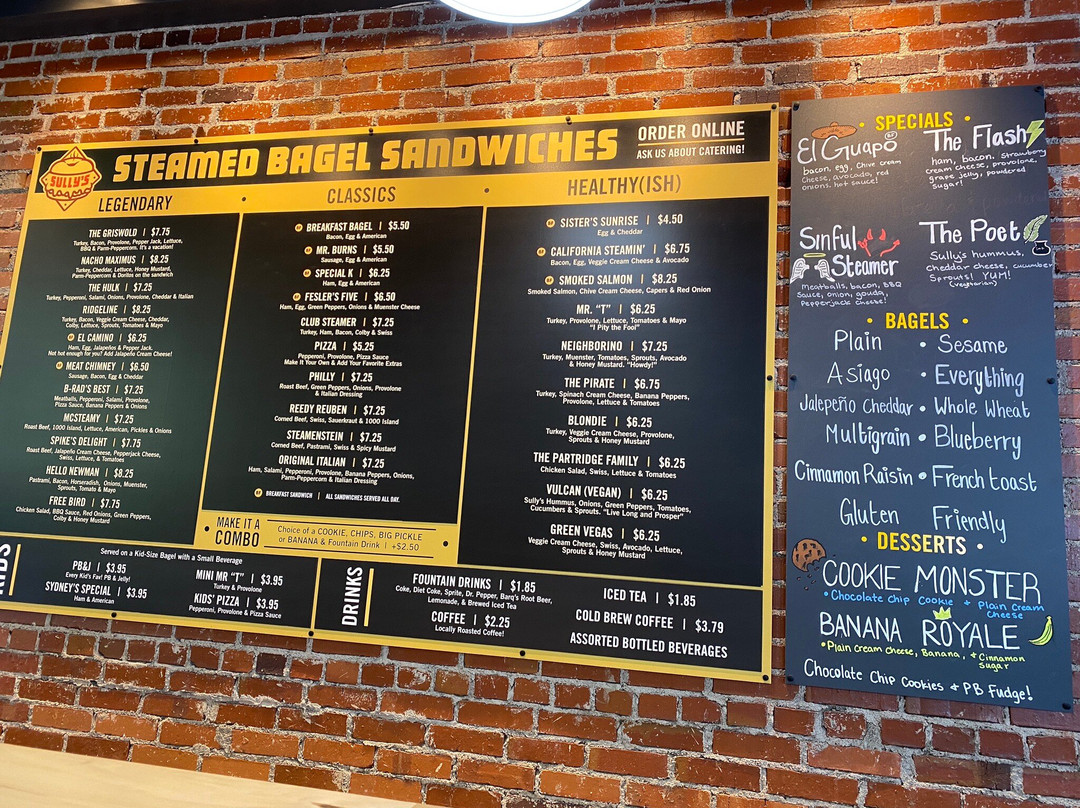 SULLY'S
STEAMED BAGEL SANDWICHES
ORDER ONLINE
ASK US ABOUT CATERING!
LEGENDARY
THE GRISWOLD | $7.75
Turkey, Bacon, Provolone, Pepper Jack, Lettuce,
BBQ & Parm-Peppercorn. It's a vacation!
NACHO MAXIMUS | $8.25
Turkey, Cheddar, Lettuce, Honey Mustard,
Parm-Peppercorn & Doritos on the sandwich
THE HULK | $7.25
Turkey, Pepperoni, Salami, Onions, Provolone, Cheddar & Italian
RIDGELINE | $8.25
Turkey, Bacon, Veggie Cream Cheese, Cheddar,
Colby, Lettuce, Sprouts, Tomatoes & Mayo
EL CAMINO | $6.25
Ham, Egg, Jalapeños & Pepper Jack.
Not hot enough for you? Add Jalapeño Cream Cheese!
MEAT CHIMNEY | $6.50
Sausage, Bacon, Egg & Cheddar
B-RAD'S BEST | $7.25
Meatballs, Pepperoni, Salami, Provolone,
Pizza Sauce, Banana Peppers & Onions
MCSTEAMY | $7.25
Roast Beef, 1000 Island, Lettuce, American, Pickles & Onions
SPIKE'S DELIGHT | $7.75
Roast Beef, Jalapeño Cream Cheese, Pepperjack Cheese,
Swiss, Lettuce, & Tomatoes
HELLO NEWMAN | $8.25
Pastrami, Bacon, Horseradish, Onions, Muenster,
Sprouts, Tomato & Mayo
FREE BIRD | $7.75
Chicken Salad, BBQ Sauce, Red Onions, Green Peppers,
Colby & Honey Mustard
CLASSICS
BREAKFAST BAGEL | $5.50
Bacon, Egg & American
MR. BURNS | $5.50
Sausage, Egg & American
SPECIAL K | $6.25
Ham, Egg & American
FESLER'S FIVE | $6.50
Ham, Egg, Green Peppers, Onions & Muenster Cheese
CLUB STEAMER | $7.25
Turkey, Ham, Bacon, Colby & Swiss
PIZZA | $5.25
Pepperoni, Provolone, Pizza Sauce
Make It Your Own & Add Your Favorite Extras
PHILLY | $7.25
Roast Beef, Green Peppers, Onions, Provolone
& Italian Dressing
REEDY REUBEN | $7.25
Corned Beef, Swiss, Sauerkraut & 1000 Island
STEAMENSTEIN | $7.25
Corned Beef, Pastrami, Swiss & Spicy Mustard
ORIGINAL ITALIAN | $7.25
Ham, Salami, Pepperoni, Provolone, Banana Peppers, Onions,
Parm-Peppercorn & Italian Dressing
BF BREAKFAST SANDWICH | ALL SANDWICHES SERVED ALL DAY.
MAKE IT A
COMBO
Choice of a COOKIE, CHIPS, BIG PICKLE
or BANANA & Fountain Drink | +$2.50
HEALTHY(ISH)
SISTER'S SUNRISE | $4.50
Egg & Cheddar
CALIFORNIA STEAMIN' | $6.75
Bacon, Egg, Veggie Cream Cheese & Avocado
SMOKED SALMON | $8.25
Smoked Salmon, Chive Cream Cheese, Capers & Red Onion
MR. "T" | $6.25
Turkey, Provolone, Lettuce, Tomatoes & Mayo
"I Pity the Fool"
NEIGHBORINO | $7.25
Turkey, Muenster, Tomatoes, Sprouts, Avocado
& Honey Mustard. "Howdy!"
THE PIRATE | $6.75
Turkey, Spinach Cream Cheese, Banana Peppers,
Provolone, Lettuce & Tomatoes
BLONDIE | $6.25
Turkey, Veggie Cream Cheese, Provolone,
Sprouts & Honey Mustard
THE PARTRIDGE FAMILY | $6.25
Chicken Salad, Swiss, Lettuce & Tomatoes
VULCAN (VEGAN) | $6.25
Sully's Hummus, Onions, Green Peppers, Tomatoes,
Cucumbers & Sprouts. "Live Long and Prosper"
GREEN VEGAS | $6.25
Veggie Cream Cheese, Swiss, Avocado, Lettuce,
Sprouts & Honey Mustard
KIDS
Served on a Kid-Size Bagel with a Small Beverage
PB&J | $3.95
Every Kid's Fav! PB & Jelly!
SYDNEY'S SPECIAL | $3.95
Ham & American
MINI MR "T" | $3.95
Turkey & Provolone
KIDS' PIZZA | $3.95
Pepperoni, Provolone & Pizza Sauce
DRINKS
FOUNTAIN DRINKS | $1.85
Coke, Diet Coke, Sprite, Dr. Pepper, Barq's Root Beer,
Lemonade, & Brewed Iced Tea
COFFEE | $2.25
Locally Roasted Coffee!
ICED TEA | $1.85
COLD BREW COFFEE | $3.79
ASSORTED BOTTLED BEVERAGES
• SPECIALS •
El Guapo BF
bacon, egg, chive cream
cheese, avocado, red
onions, hot sauce!
The Flash
ham, bacon, strawberry
cream cheese, provolone,
grape jelly, powdered
sugar!
Sinful
Steamer
Meatballs, bacon, BBQ
Sauce, onion, gouda,
Pepperjack cheese!
The Poet
Sully's hummus,
Cheddar cheese, cucumber
Sprouts! YUM!
(vegetarian)
• BAGELS •
Plain • Sesame
Asiago • Everything
Jalepeño Cheddar • Whole Wheat
Multigrain • Blueberry
Cinnamon Raisin • French toast
Gluten Friendly
• DESSERTS •
COOKIE MONSTER
• Chocolate Chip Cookie + Plain Cream
Cheese
BANANA ROYALE
• Plain Cream cheese, Banana, + Cinnamon
sugar
Chocolate Chip Cookies + PB Fudge!